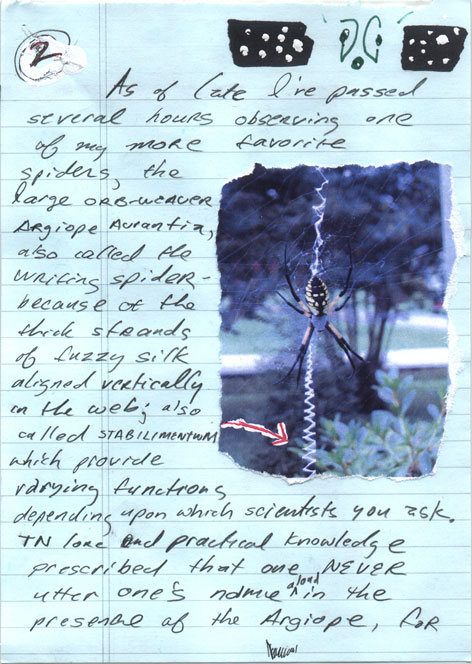 2
As of late I've passed
several hours observing one
of my more favorite
spiders, the
large ORB-WEAVER
Argiope Aurantia,
also called the
writing spider -
because of the
thick strands
of fuzzy silk
aligned vertically
in the web; also
called STABILIMENTUM
which provide
varying functions
depending upon which scientists you ask.
TN lore and practical knowledge
prescribed that one NEVER
utter one's name aloud in the
presence of the Argiope, for